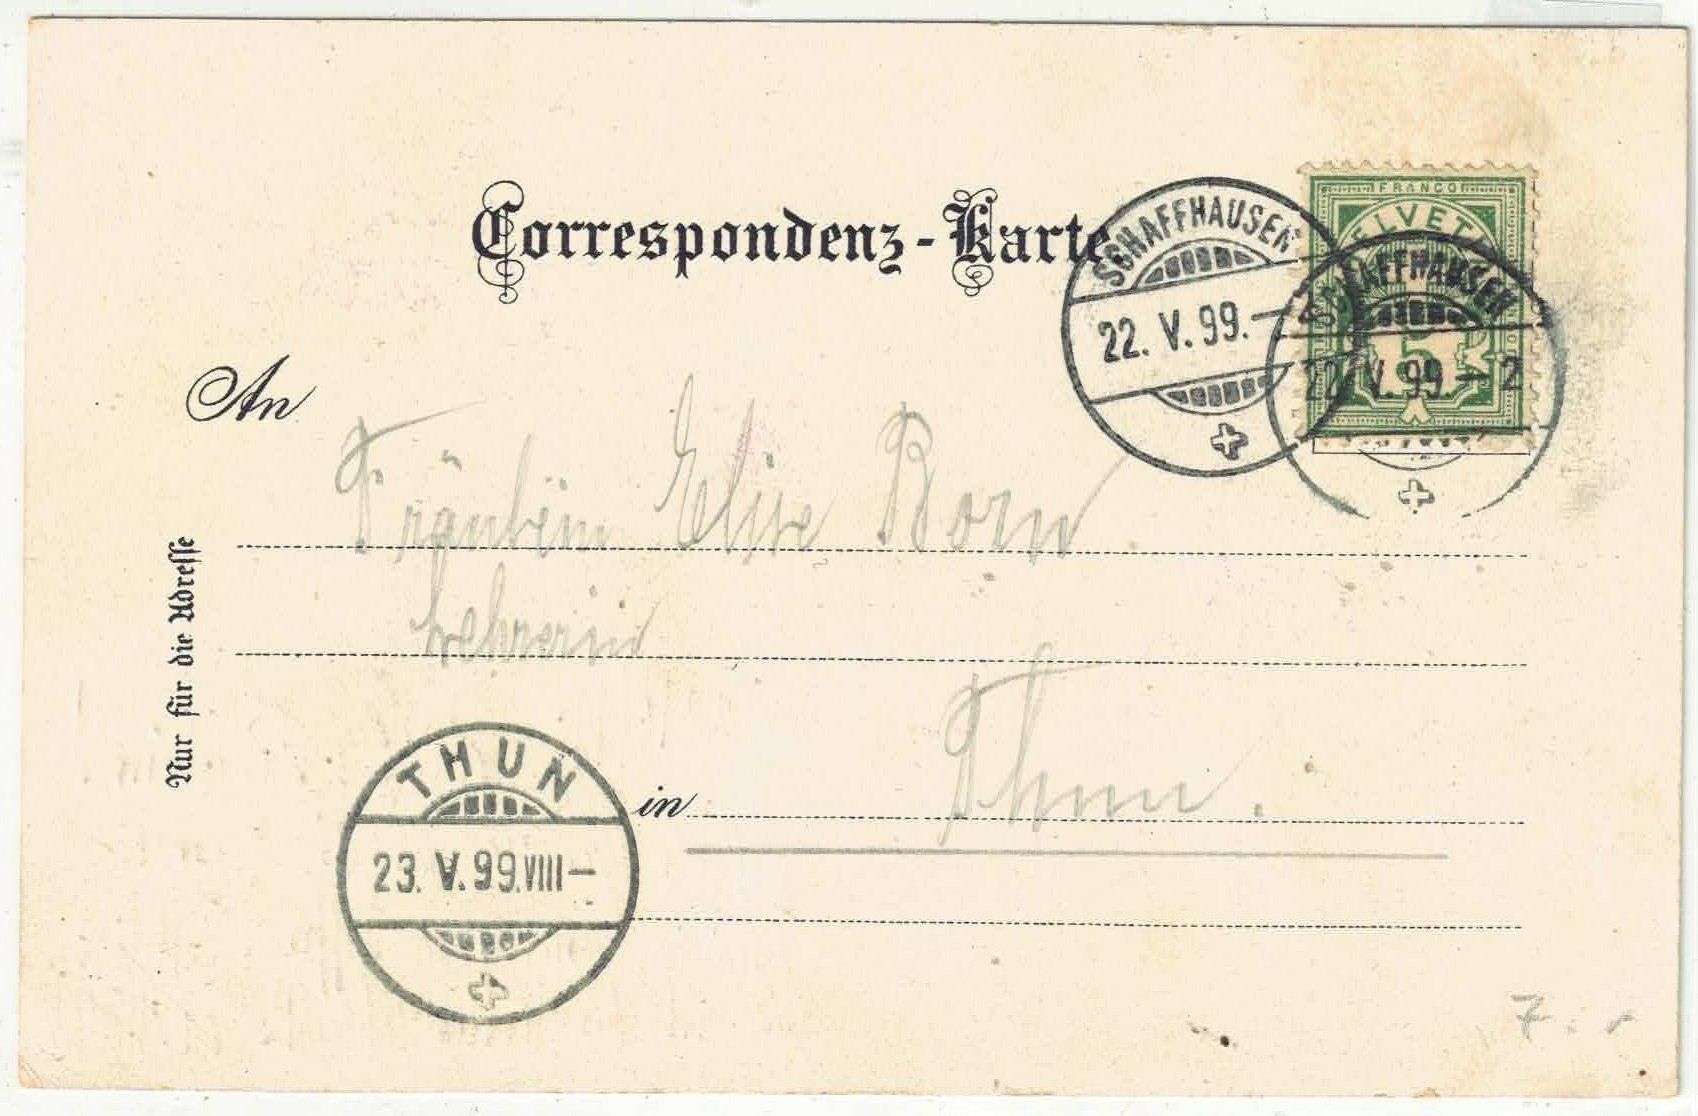 Correspondenz-Karte
FRANCO
HELVETIA
5
SCHAFFHAUSEN
22. V. 99. –
SCHAFFHAUSEN
22. V. 99. – 2
An
Fräulein Elise Born
Lehrerin
in Thun.
Nur für die Adresse
THUN
23. V. 99. VIII –